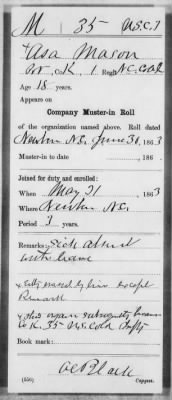 M 35 U.S.C.T.
+ Asa Mason
Pvt., Co. K, 1 Reg't N.C. Col'd
Age 18 years.
Appears on
Company Muster-in Roll
of the organization named above. Roll dated
Newbern N.C., June 30, 1863
Muster-in to date , 186 .
Joined for duty and enrolled:
When May 21, 1863
Where Newbern N.C.
Period 3 years.
Remarks: Sick absent
with leave
x Entry erased by line except
Remark
+ This organ subsequently became
Co. K, 35 U.S. Col'd Inf'ty
Book mark:
(356) Copyist.